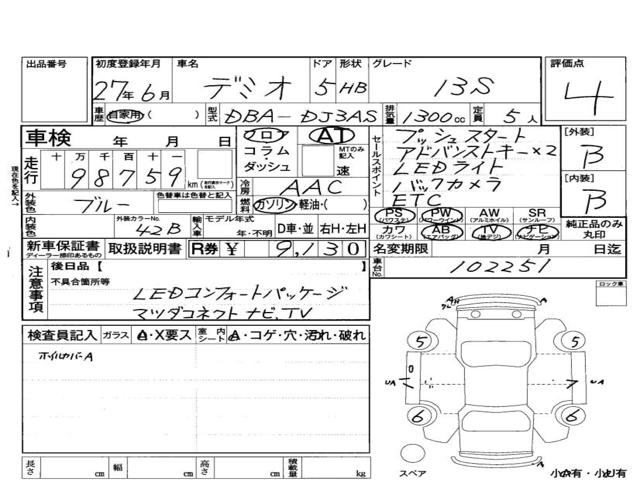 出品番号 初度登録年月 車名 ドア 形状 グレード 評価点
27年6月 デミオ 5 HB 13S 4
車歴 自家用( ) 型式 DBA-DJ3AS 排気量 1300cc 定員 5人
車検 年 月 日 フロア AT セールスポイント プッシュスタート [外装]
コラム アドバンストキー×2 B
走行 十 万 千 百 十 一 ダッシュ MTのみ記入 速 LEDライト
98759 km 冷房 AAC バックカメラ [内装]
外装色 ブルー 燃料 ガソリン・軽油・( ) ETC B
PS PW AW SR
(パワステ) (パワーウィンドー) (アルミホイル) (サンルーフ)
内装色 外装カラーNo. 42B 輸入車 モデル年式 年・不明 D車・並 右H・左H カワ AB TV ナビ 純正品のみ丸印
(カワシート) (エアバッグ) (地デジ) (ナビゲーション)
新車保証書 取扱説明書 R券 ¥ 9,130 名変期限 月 日迄
ディーラー捺印あるもの
注意事項 後日品【 】 車台No. 102251
不具合箇所等 ロック車
LEDコンフォートパッケージ
マツダコネクト ナビ、TV
検査員記入 ガラス A・X要ス 室内シート A・コゲ・穴・汚れ・破れ
ホイルカバーA
5 5
UA UA
6 6
長さ cm 幅 cm 高さ cm 積載量 kg
スペア 小A有・小U有